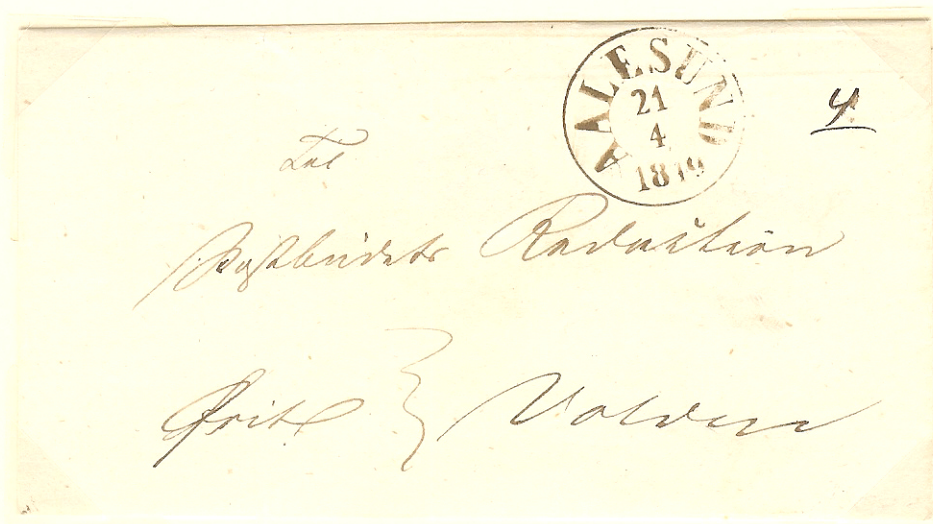 AALESUND
21
4
1849
4
Til
Postbudets Redaktion
Frit Volden